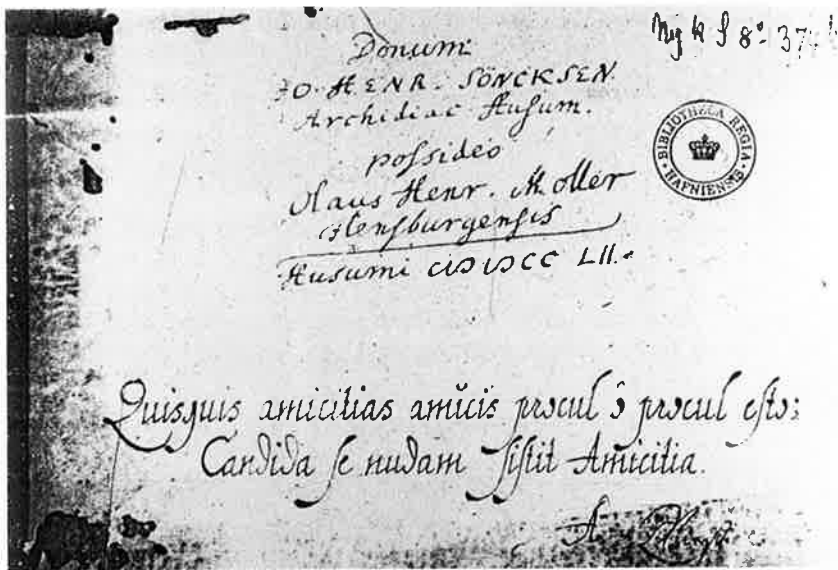 Ny k S 8º 37
Donum
JO. HENR. SÖNCKSEN.
Archidiac Husum.
possideo
Olaus Henr. Moller
Flensburgensis
Husumi CIƆIƆCC LII.
BIBLIOTHECA REGIA HAFNIENSIS
Quisquis amicitias amicis procul ô procul esto:
Candida se nudam sistit Amicitia.